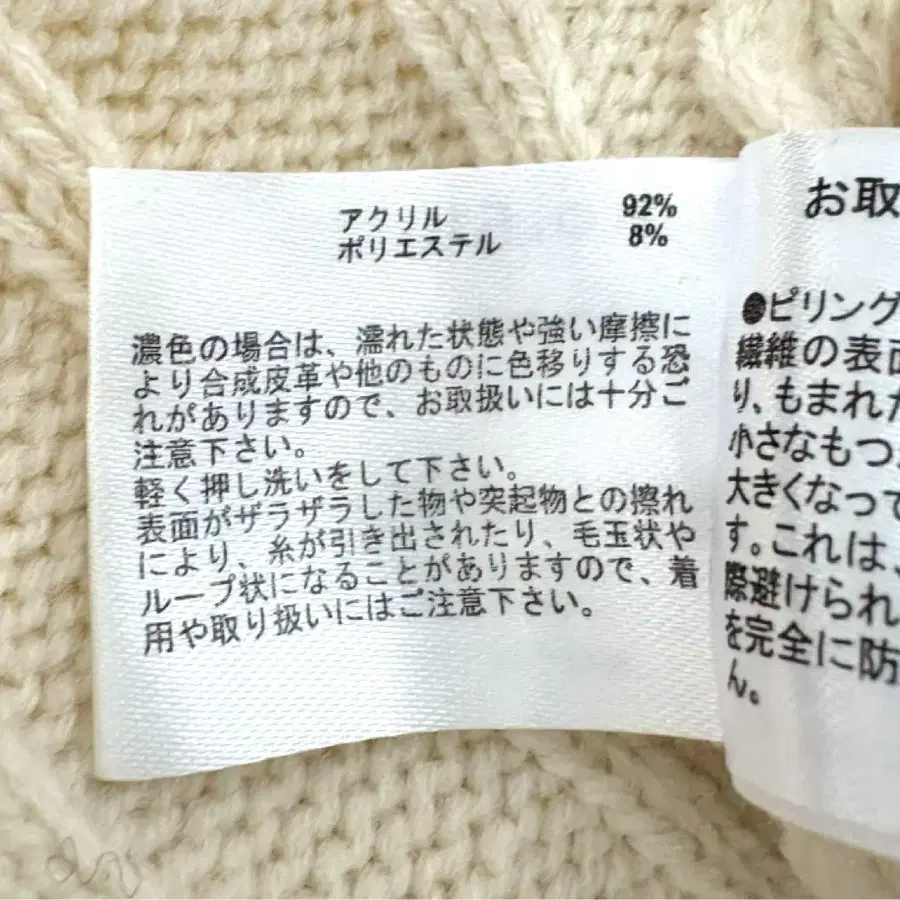 アクリル 92%
ポリエステル 8%
濃色の場合は、濡れた状態や強い摩擦に
より合成皮革や他のものに色移りする恐
れがありますので、お取扱いには十分ご
注意下さい。
軽く押し洗いをして下さい。
表面がザラザラした物や突起物との擦れ
により、糸が引き出されたり、毛玉状や
ループ状になることがありますので、着
用や取り扱いにはご注意下さい。
お取
●ピリング
繊維の表面
り、もまれた
小さなもつ
大きくなって
す。これは、
際避けられ
を完全に防
ん。